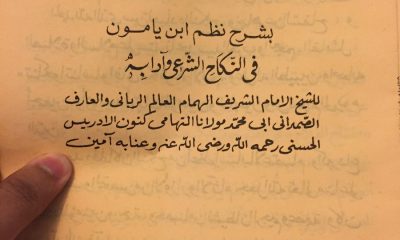 بشرح نظم ابن يامون
في النكاح الشرعي وآدابه
للشيخ الامام الشريف الهمام العالم الرباني والعارف
الصمداني ابي محمد مولانا التهامي كنون الادريسي
الحسني رحمه الله ورضي الله عنه وعنا به آمين